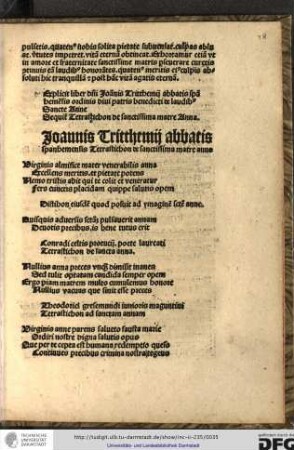 pulsetis. quatenus nobis solita pietate subueniat. culpas abluat. virtutes impetret. vitā eternā obtineat. Exhortamur etiā vt
in amore et fraternitate sanctissime matris perseuerare curetis
continuis eā laudibus honorātes. quaten⁹ meritis ei⁹ culpis absoluti hic tranquillā et post hāc vitā agatis eternā.
Explicit liber dñi Joānis Tritthemij abbatis spā
hemēsis ordinis diui patris benedicti de laudibus
Sancte Anne
Sequit̄ Tetrastichon de sanctissima matre Anna.
Joannis Tritthemij abbatis
spanhemensis Tetrastichon de sanctissima matre anna
Virginis almifice mater venerabilis anna
Excellens meritis. et pietate potens
Nemo tristis abit qui te colit et veneratur
Fers cunctis placidam quippe salutis opem
Distichon eiusdē quod posuit ad ymaginē scē anne.
Quisquis aduersis sortis pulsauerit annam
Deuotis precibus. is bene tutus erit
Conradi celtis protucij. poete laureati
Tetrastichon de sancta anna.
Nullius anna preces vnq̄ dimisit inanes
Sed tulit optatam candida semper opem
Ergo piam matrem multo cumulemus honore
Nullius vacuas que sinit esse preces
Theodorici gresemundi iunioris maguntini
Tetrastichon ad sanctam annam
Virginis anne parens saluto fausta marie
Ordiri nostre digna salutis opus
Que per te cepta est humane redemptio queso
Continuis precibus crimina nostra
TECHNISCHE UNIVERSITÄT DARMSTADT
http://tudigit.ulb.tu-darmstadt.de/show/inc-ii-235/0035
Universitäts- und Landesbibliothek Darmstadt
gefördert durch die
DFG